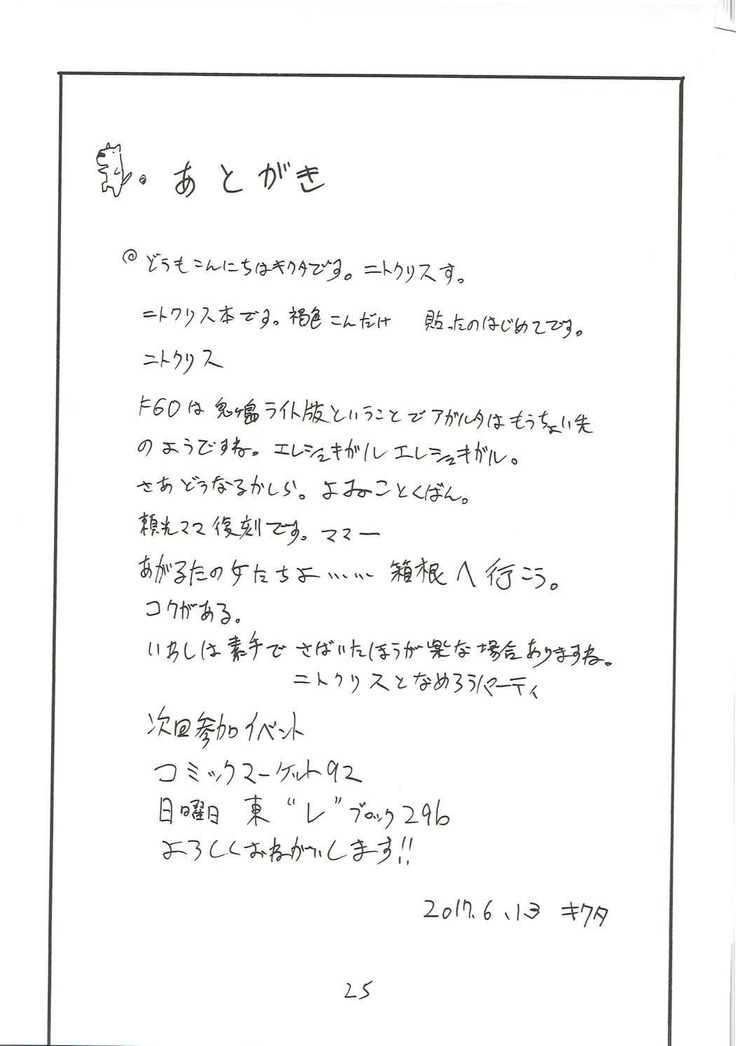 あとがき
どうもこんにちはキクタです。ニトクリスす。
ニトクリス本です。褐色こんだけ 貼ったのはじめてです。
ニトクリス
FGOは鬼ヶ島ライト版ということでアガルタはもうちょい先
のようですね。エレシュキガル エレシュキガル。
さあどうなるかしら。よみのことくばん。
頼光ママ復刻です。ママー
あがるたの女たちよ…… 箱根へ行こう。
コクがある。
いわしは素手でさばいたほうが楽な場合ありますね。
ニトクリスとなめろうパーティ
次回参加イベント
コミックマーケット92
日曜日 東 "レ" ブロック29b
よろしくおねがいします!!
2017.6.13 キクタ
25